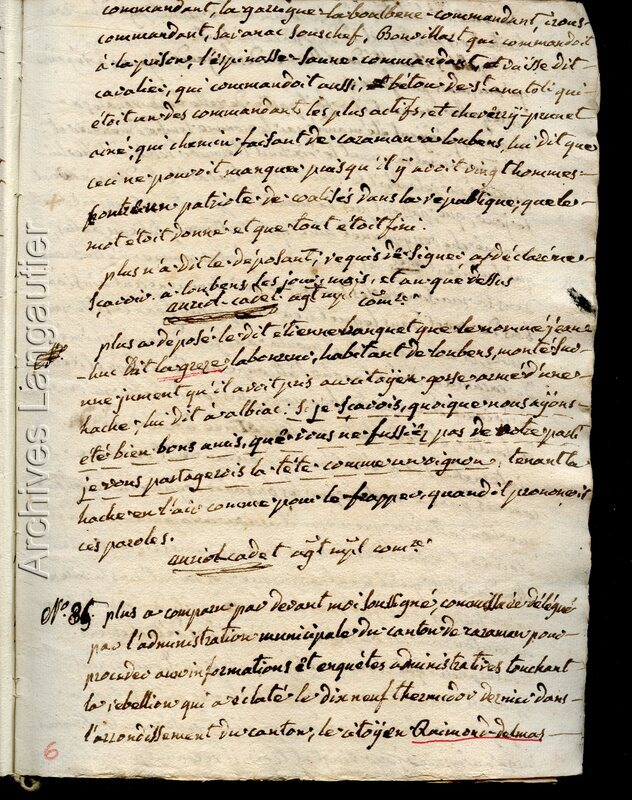 commandant, la garrigue la boulbene commandant, trous-
commandant, Savanac souschef, Bonvillart qui commandoit
à la prison, l'espinasse Saune commandant, et vaïsse dit
cavalier, qui commandoit aussi, béton de St. anatoli qui
étoit un des commandant les plus actifs, et chevery prunet
ainé, qui chemin faisant de caraman à loubens, lui dit que
ceci ne pouvoit manquer puisqu'il y avoit vingt hommes
contre un patriote de coalisés dans la république, que le
mot étoit donné et que tout étoit fini.
plus n'a dit le déposant, requis de signer a déclaré ne
sçavoir, à loubens les jour, mois, et an que dessus
auriol cadet agt mpl comre.
plus a déposé le dit étienne banquet que le nommé jean
luc dit la greze, laboureur, habitant de loubens, monté sur
une jument qu'il avoit pris au citoyen gorse, armé d'une
hache, lui dit a albiac: si je sçavois, quoique nous ayons
été bien bons amis, que vous ne fussiéz pas de notre parti
je vous partagerois la tête comme un oignon, tenant la
hache en l'air comme pour le frapper, quand il prononçoit
ces paroles.
auriol cadet agt mpl comre.
No. 85 plus a comparu par devant moi soussigné, commissaire délégué
par l'administration municipale du canton de caraman pour
proceder aux informations et enquêtes administratives touchant
la rebellion qui a éclaté le dixneuf thermidor dernier dans
l'arrondissement du canton, le citoyen Raimond delmas
6
Archives Langautier